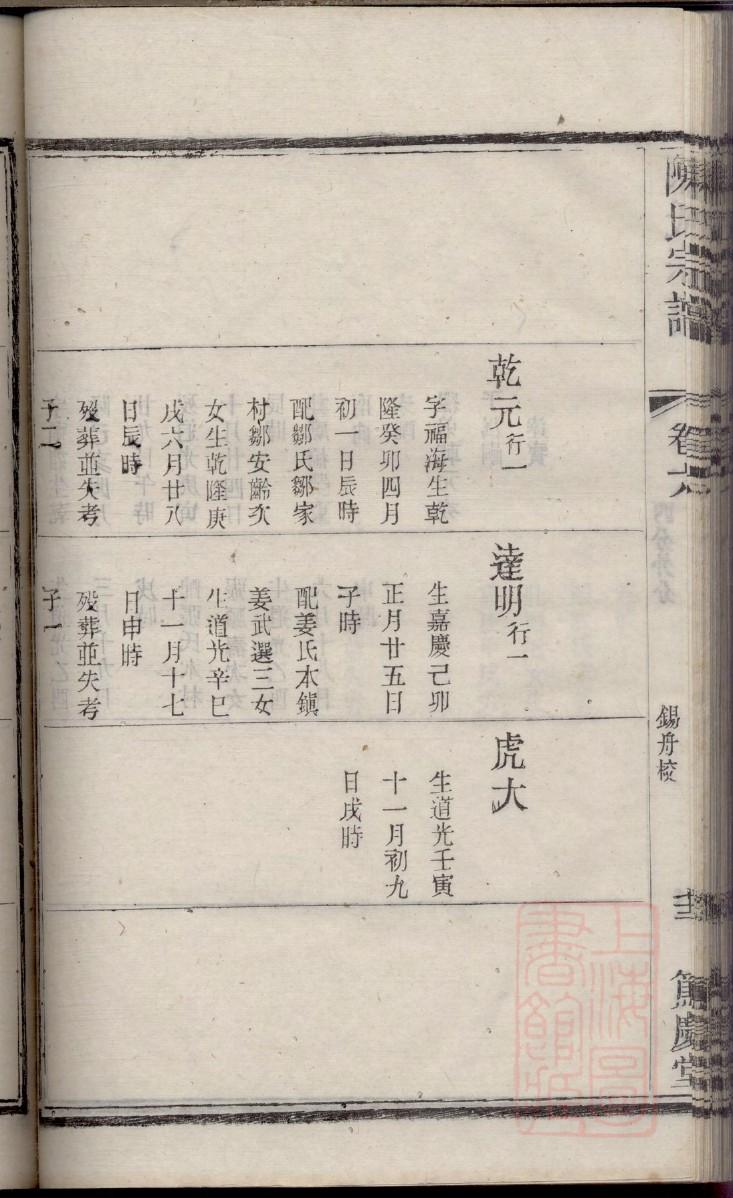 陳氏宗譜
卷六
錫舟校
篤慶堂
乾元行一
字福海生乾
隆癸卯四月
初一日辰時
配鄒氏鄒家
村鄒安齡次
女生乾隆庚
戌六月廿八
日辰時
歿葬並失考
子二
達明行一
生嘉慶己卯
正月廿五日
子時
配姜氏本鎮
姜武選三女
生道光辛巳
十一月十七
日申時
歿葬並失考
子一
虎大
生道光壬寅
十一月初九
日戌時
上海圖書館藏